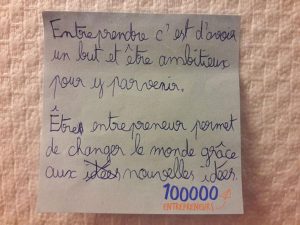 Entreprendre c'est d'avoir
un but et être ambitieux
pour y parvenir.
Êtres entrepreneur permet
de changer le monde grâce
aux idées nouvelles idées.
100000
ENTREPRENEURS